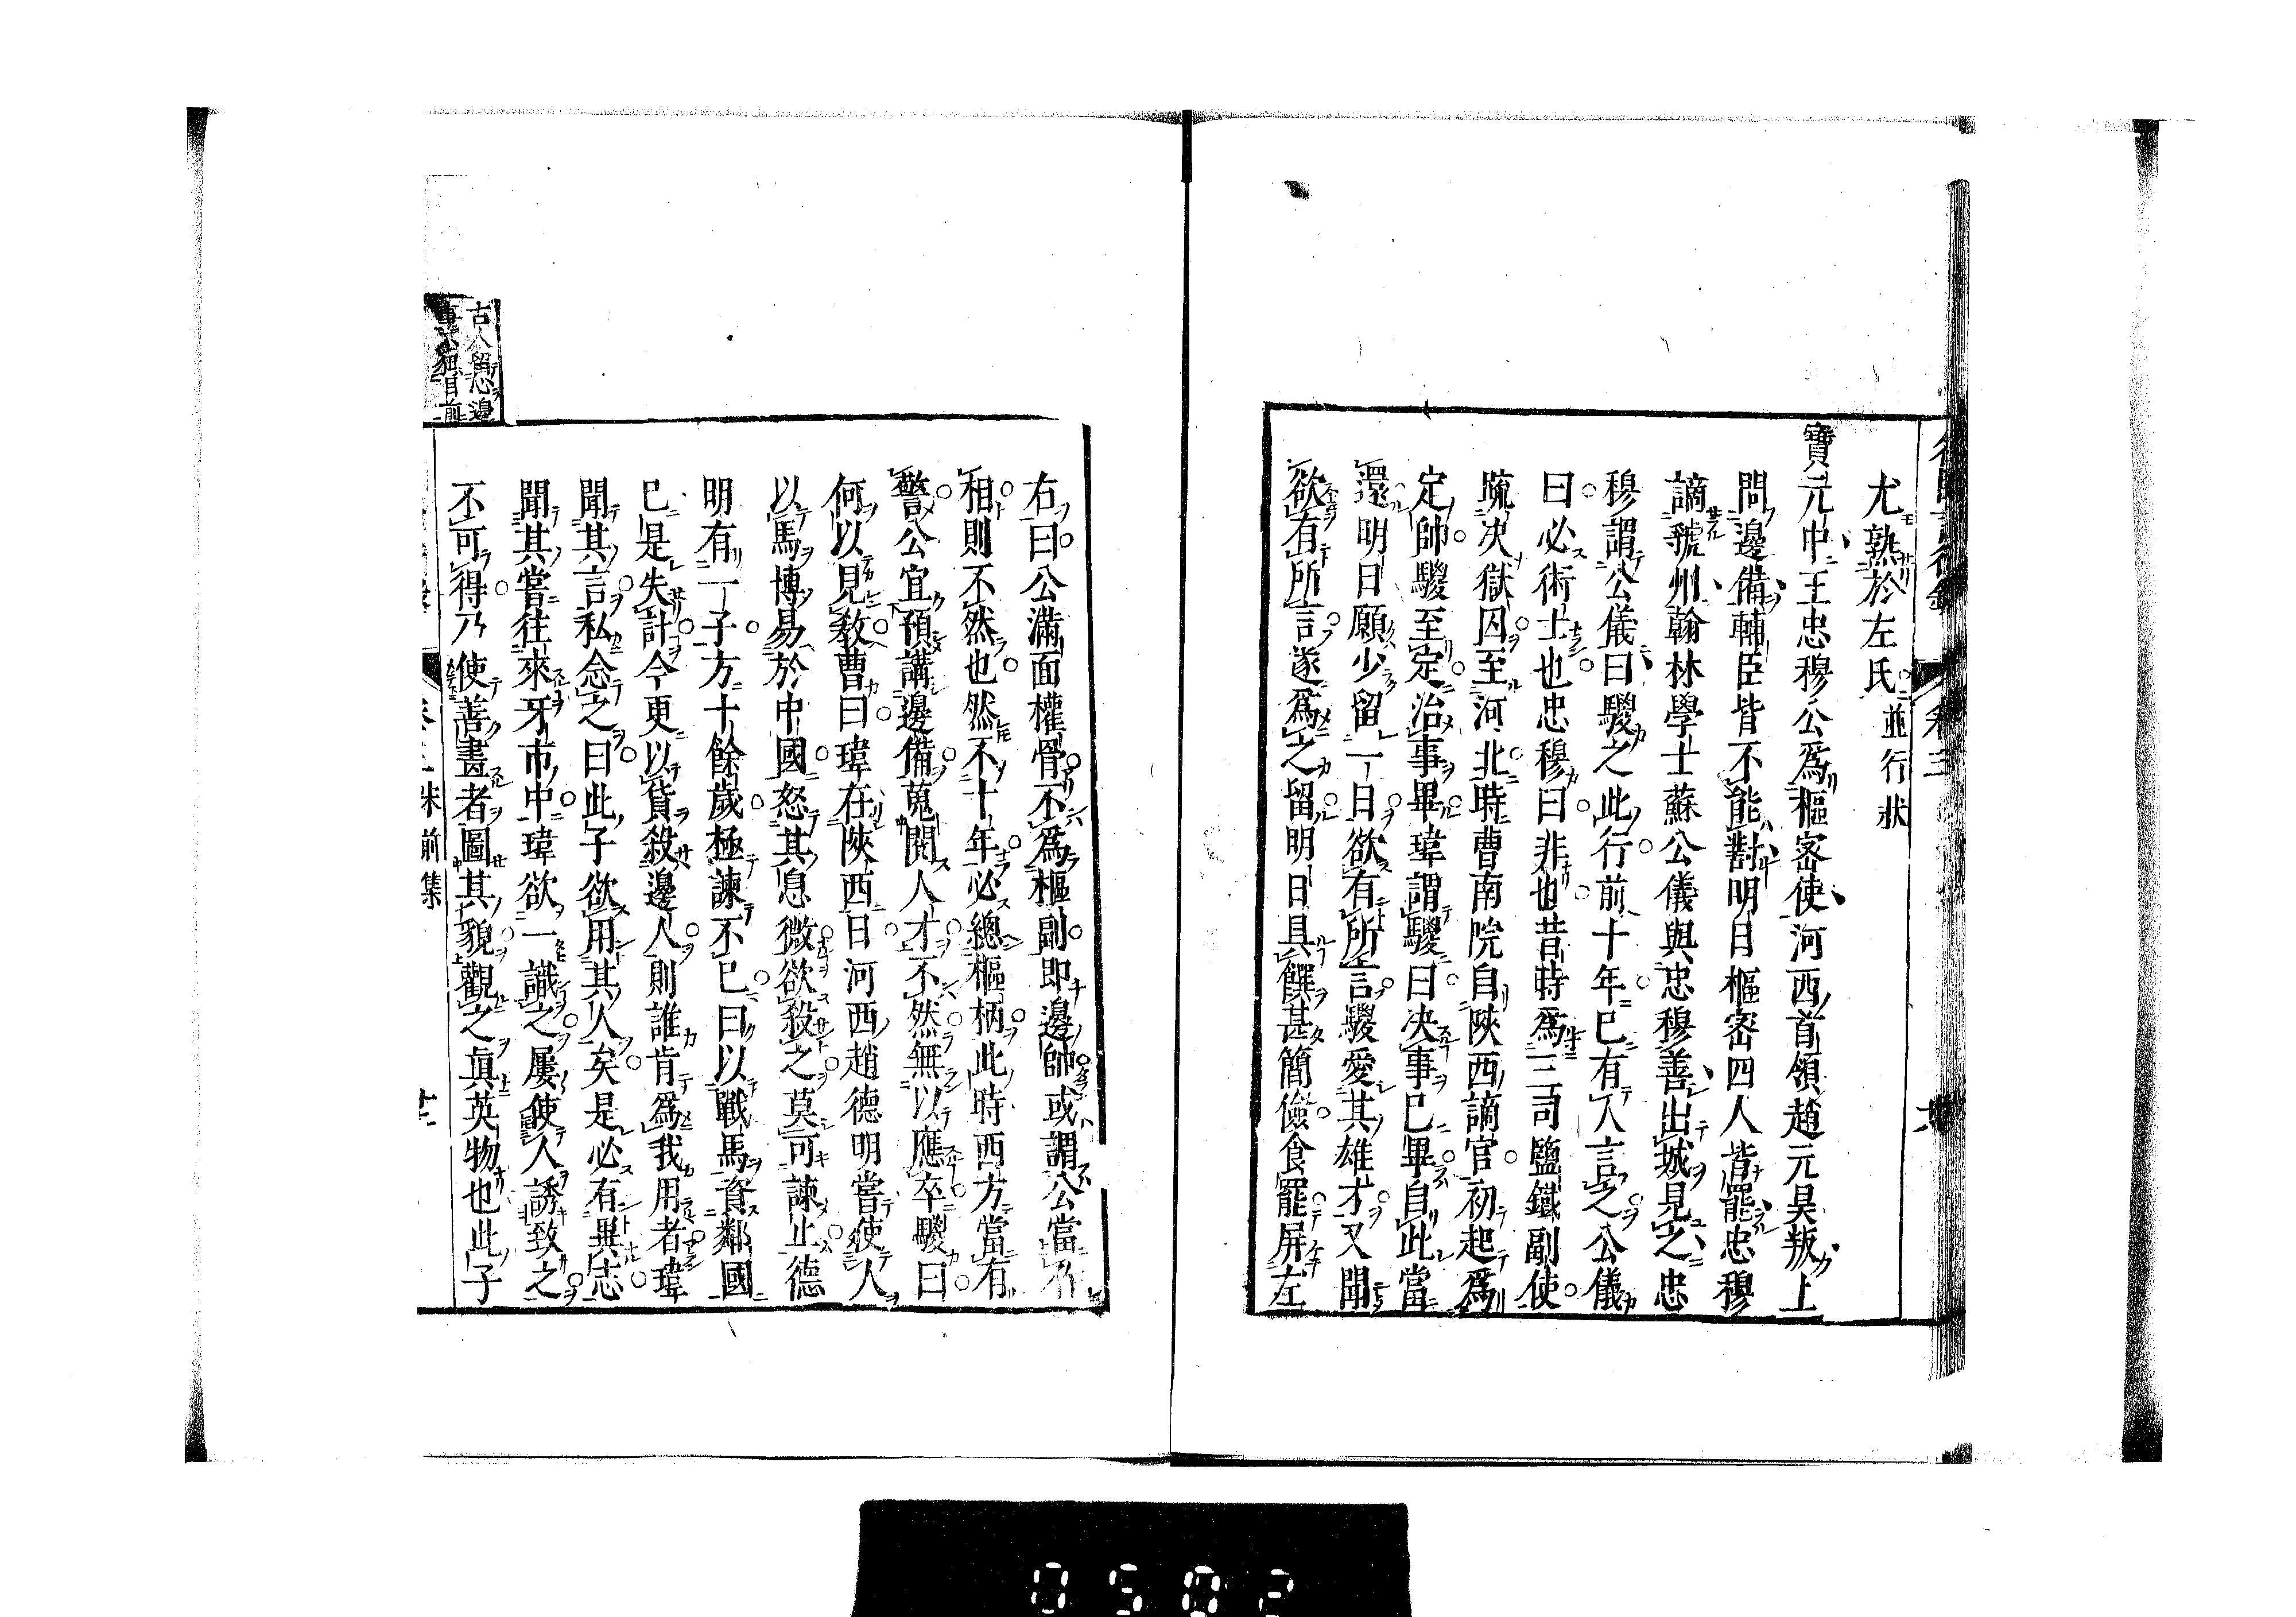 尤熟於左氏並行狀
寶元中王忠穆公爲樞密使河西首領趙元昊叛上
問邊備輔臣皆不能對明日樞密四人皆罷忠穆
謫虢州翰林學士蘇公儀與忠穆善出城見之忠
穆謂公儀曰鬷之此行前十年已有人言之公儀
曰必術士也忠穆曰非也昔時爲三司鹽鐵副使
疏決獄囚至河北時曹南院自陝西謫官初起爲
定帥鬷至定治事畢瑋謂鬷曰決事已畢自此當
還明日願少留一日欲有所言鬷愛其雄才又聞
欲有所言遂爲之留明日具饌甚簡儉食罷屏左
右曰公滿面權骨不爲樞副即邊帥或謂公當作
相則不然也然不十年必總樞柄此時西方當有
警公宜預講邊備蒐閱人才不然無以應卒鬷曰
何以見敎曹曰瑋在陝西日河西趙德明嘗使人
以馬博易於中國怒其息微欲殺之莫可諫止德
明有一子方十餘歲極諫不已曰以戰馬資鄰國
已是失計今更以貨殺邊人則誰肯爲我用者瑋
聞其言私念之曰此子欲用其人矣是必有異志
聞其嘗往來牙市中瑋欲一識之屢使人誘致之
不可得乃使善畫者圖其貌觀之眞英物也此子
古人留心邊
事不獨目前
卷三 朱前集
0502